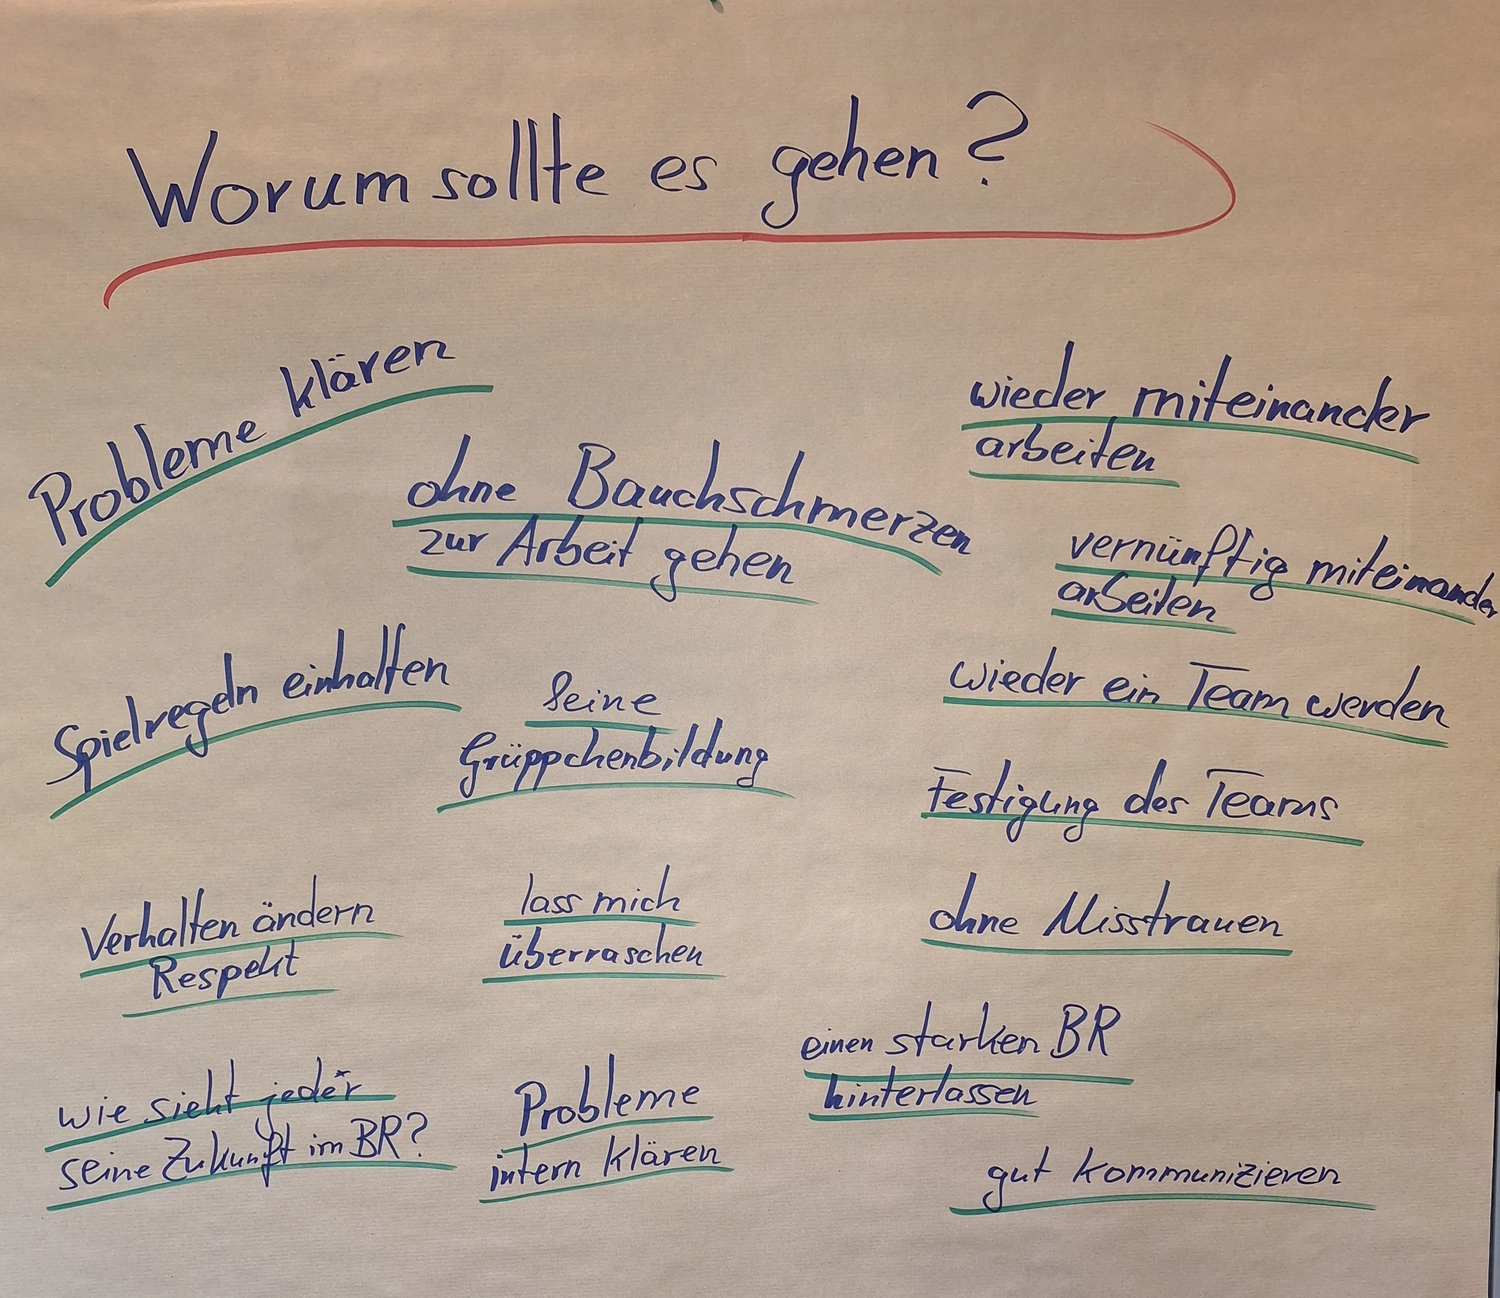 Worum sollte es gehen?
Probleme klären
ohne Bauchschmerzen
zur Arbeit gehen
wieder miteinander
arbeiten
vernünftig miteinander
arbeiten
Spielregeln einhalten
keine
Grüppchenbildung
wieder ein Team werden
Festigung des Teams
Verhalten ändern
Respekt
lass mich
überraschen
ohne Misstrauen
einen starken BR
hinterlassen
wie sieht jeder
seine Zukunft im BR?
Probleme
intern klären
gut kommunizieren